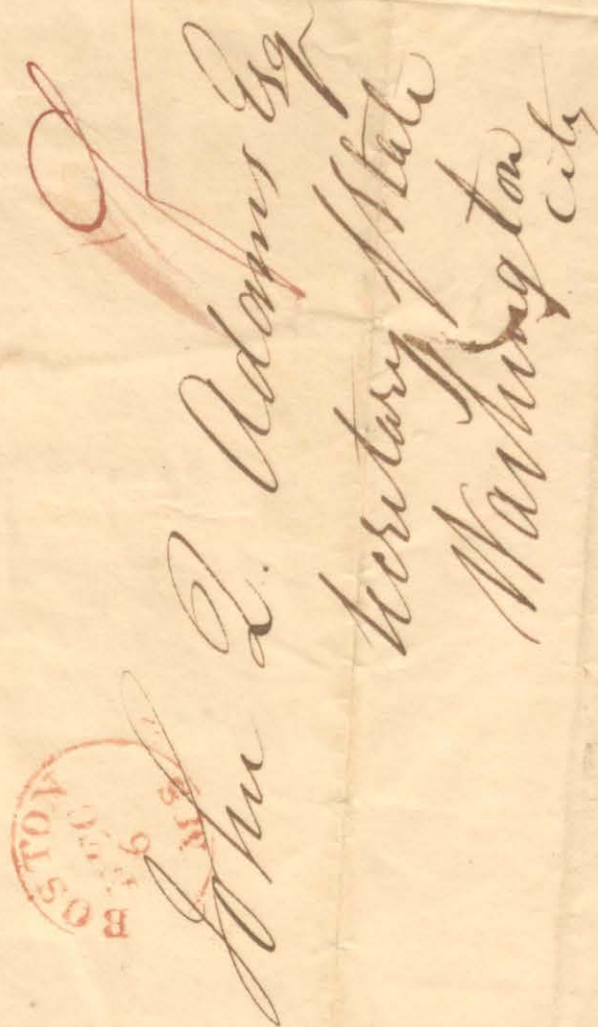 BOSTON
DEC
9
MS
John Q. Adams Esq
Secretary of State
Washington
City